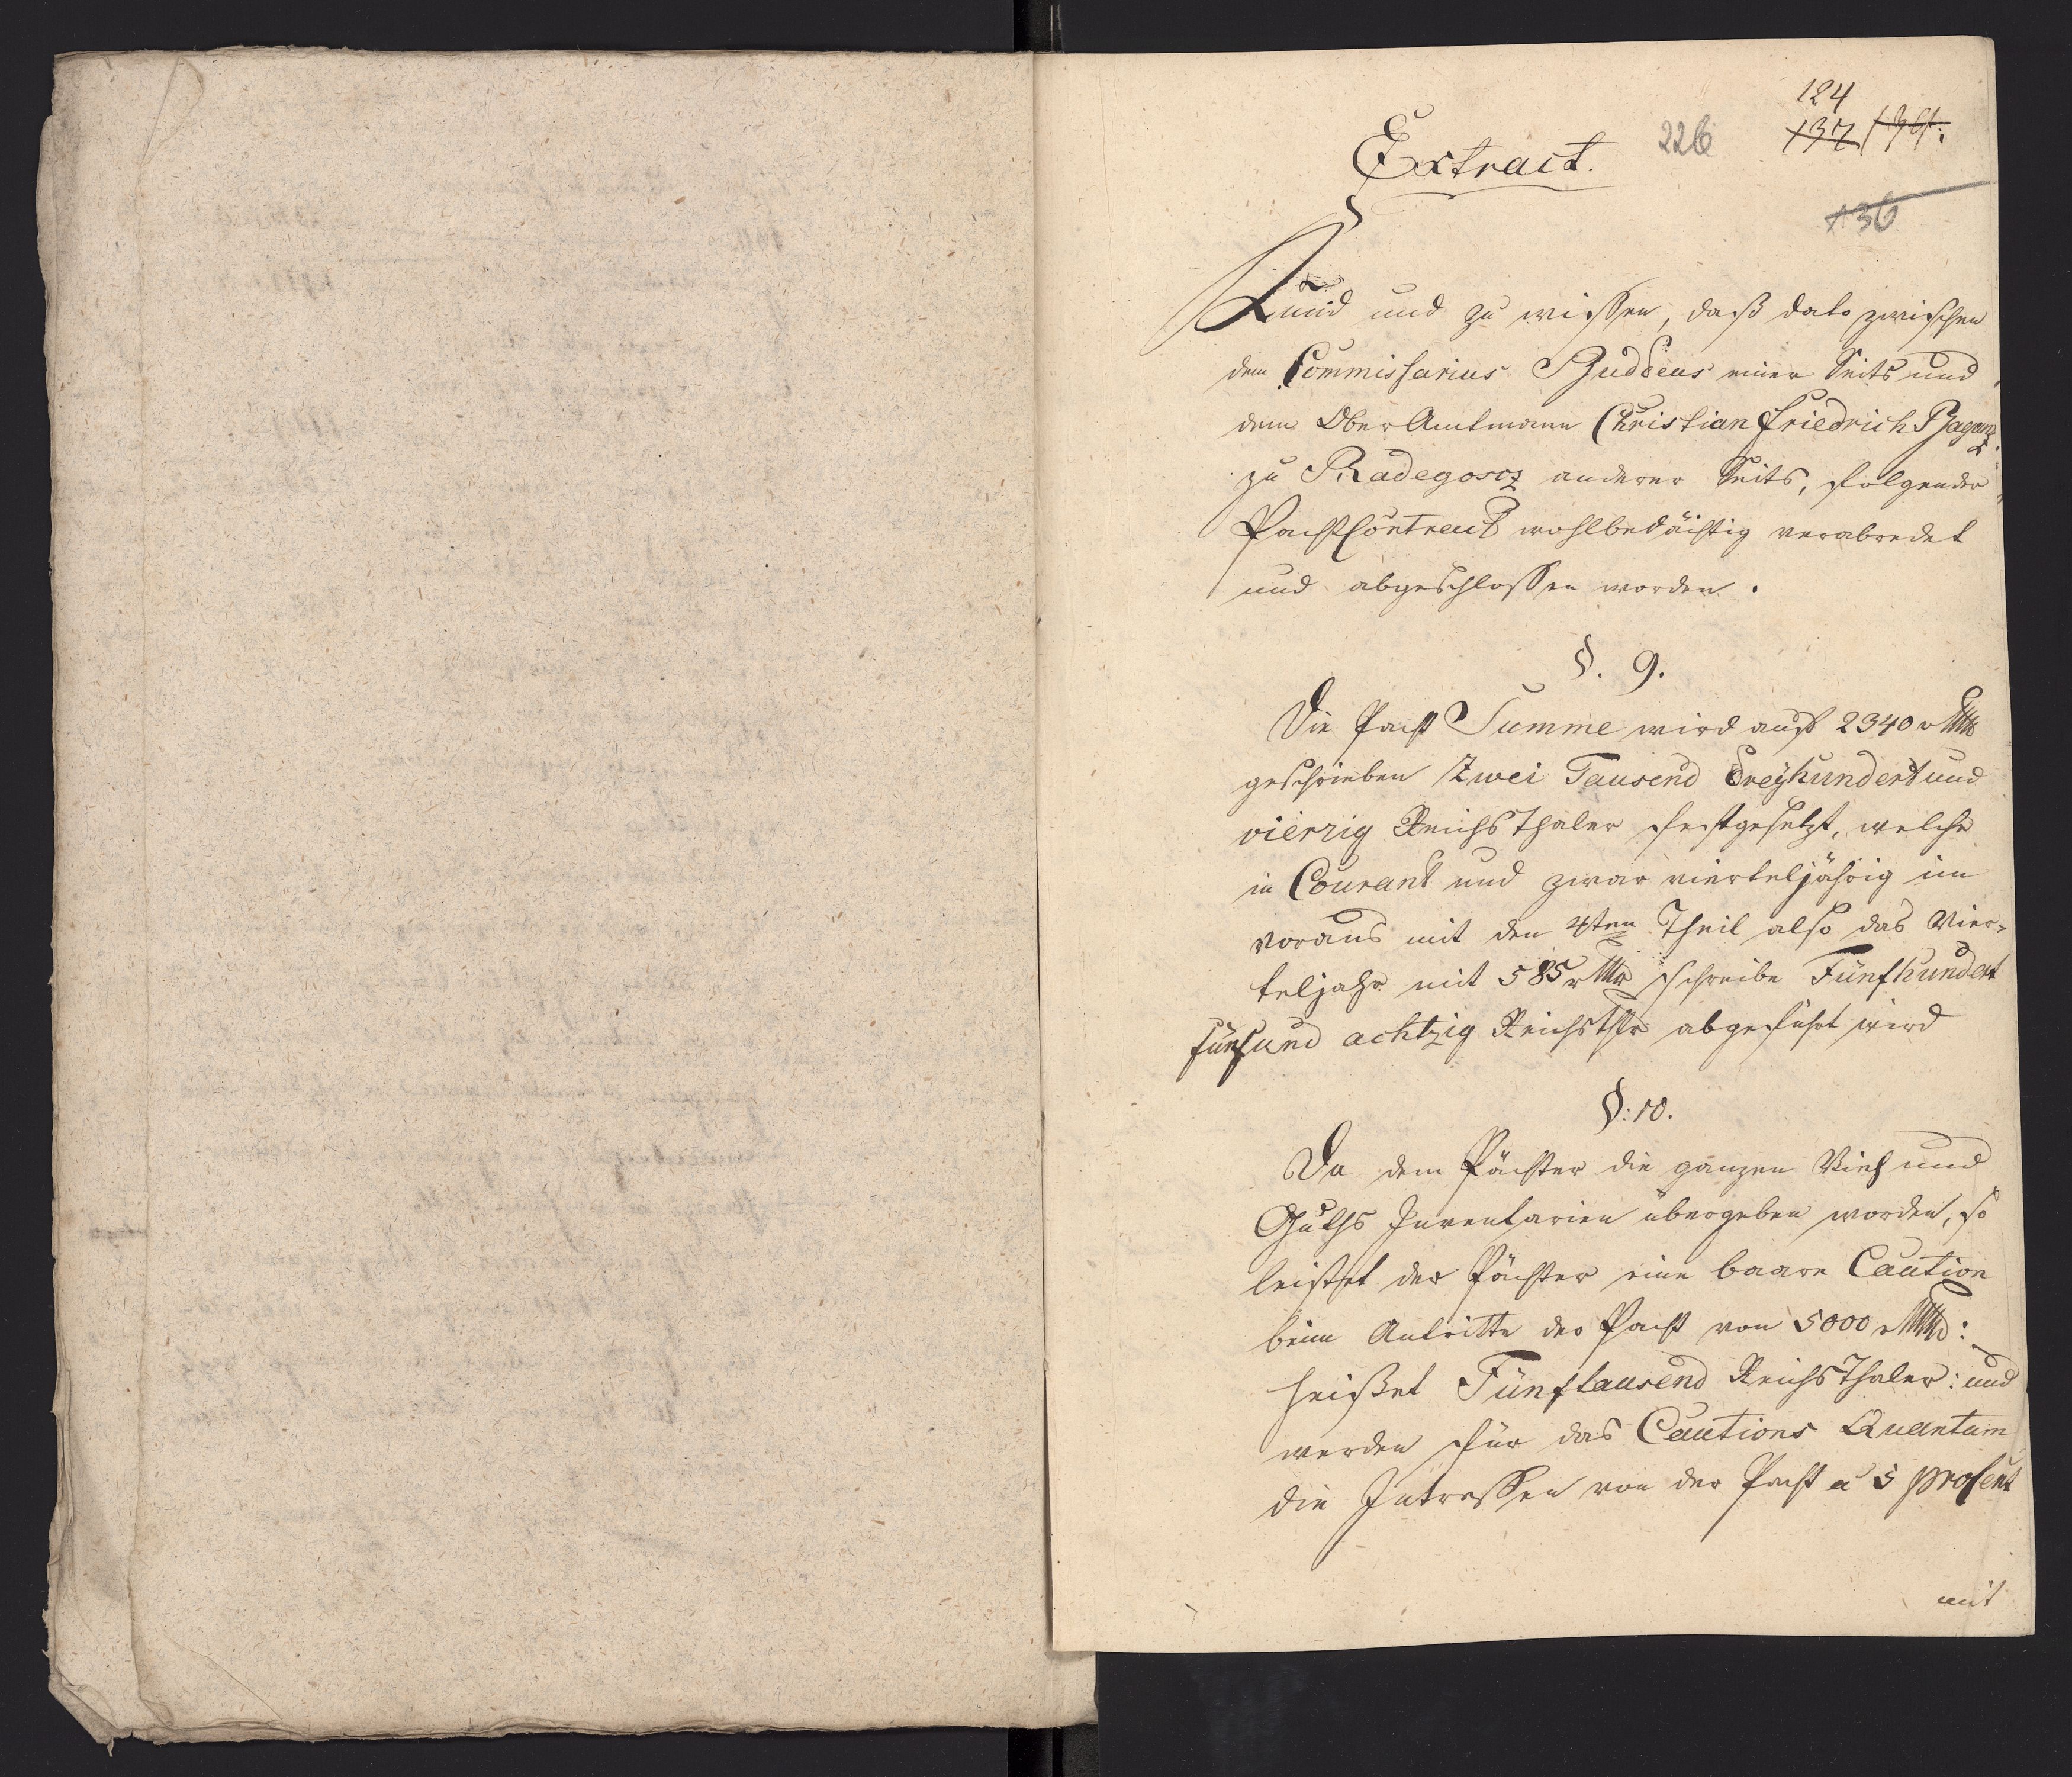 124
Extract. 226 137 134.
136
Kund und zu wissen, daß dato zwischen
dem Commissarius Buddeus einer Seits und
dem Ober Amtmann Christian Friedrich
zu Radegoscz anderer Seits, folgender
Pacht Contract wohlbedächtig verabredet
und abgeschlossen worden.
§. 9.
Die Pacht Summe wird auf 2340 rthlr
geschrieben Zwei Tausend Dreyhundert und
vierzig Reichs Thaler festgesetzt, welche
in Courant und zwar vierteljährig im
voraus mit den 4ten Theil also das Vier-
teljahr mit 585 rthlr schreibe Fünfhundert
fünf und achtzig Reichsthlr abgeführt wird
§: 10.
Da dem Pächter die ganzen Vieh und
Guths Inventarien übergeben worden, so
leistet der Pächter eine baare Caution
beim Antritte der Pacht von 5000 rthlr:
heißet Fünftausend Reichs Thaler: und
werden für das Cautions Quantum
die Intressen von der Pacht a 5 proCent
mit